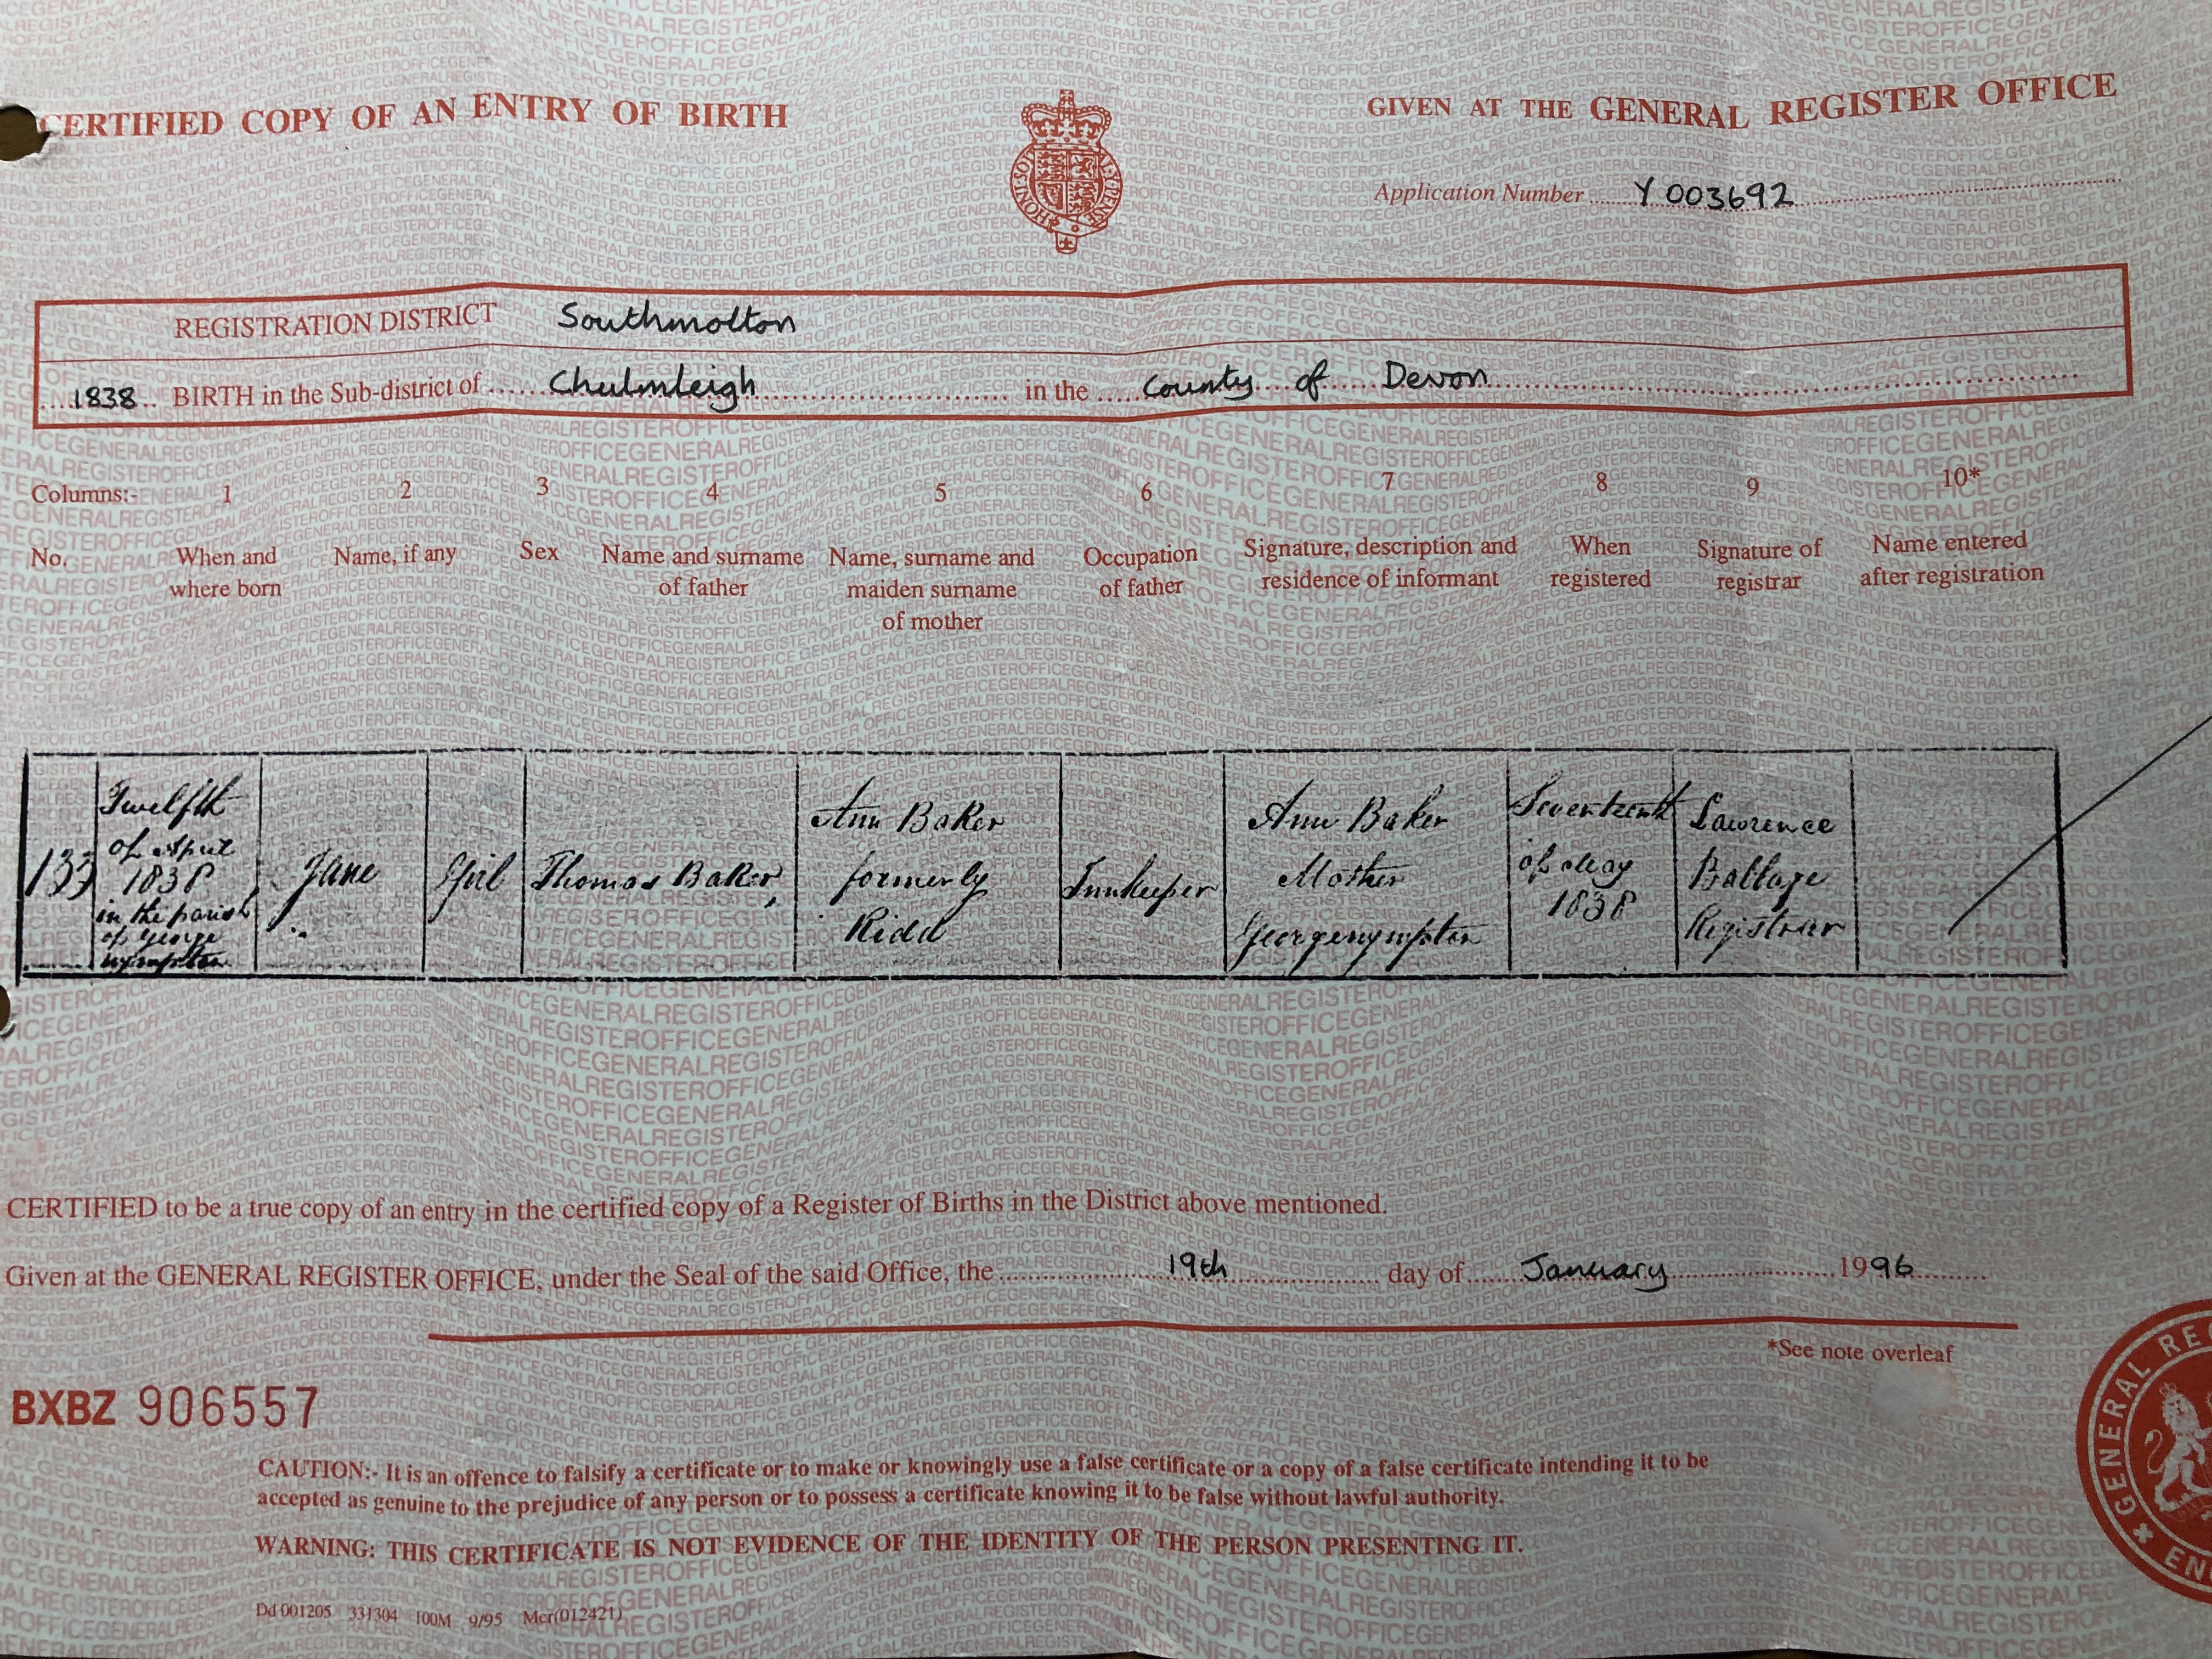 CERTIFIED COPY OF AN ENTRY OF BIRTH
GIVEN AT THE GENERAL REGISTER OFFICE
Application Number Y 003692
REGISTRATION DISTRICT Southmolton
1838 BIRTH in the Sub-district of Chulmleigh in the County of Devon
Columns:- 1 2 3 4 5 6 7 8 9 10*
No.
When and
where born
Name, if any
Sex
Name and surname
of father
Name, surname and
maiden surname
of mother
Occupation
of father
Signature, description and
residence of informant
When
registered
Signature of
registrar
Name entered
after registration
133
Twelfth
of April
1838
in the parish
of George
nympton
Jane
Girl
Thomas Baker
Ann Baker
formerly
Ridd
Innkeeper
Ann Baker
Mother
Georgenympton
Seventeenth
of May
1838
Lawrence
Registrar
CERTIFIED to be a true copy of an entry in the certified copy of a Register of Births in the District above mentioned.
Given at the GENERAL REGISTER OFFICE, under the Seal of the said Office, the 19th day of January 1996
*See note overleaf
BXBZ 906557
CAUTION:- It is an offence to falsify a certificate or to make or knowingly use a false certificate or a copy of a false certificate intending it to be
accepted as genuine to the prejudice of any person or to possess a certificate knowing it to be false without lawful authority.
WARNING: THIS CERTIFICATE IS NOT EVIDENCE OF THE IDENTITY OF THE PERSON PRESENTING IT.
Dd 001205 331304 100M 9/95 Mcr(012421)
GENERAL RE
EN